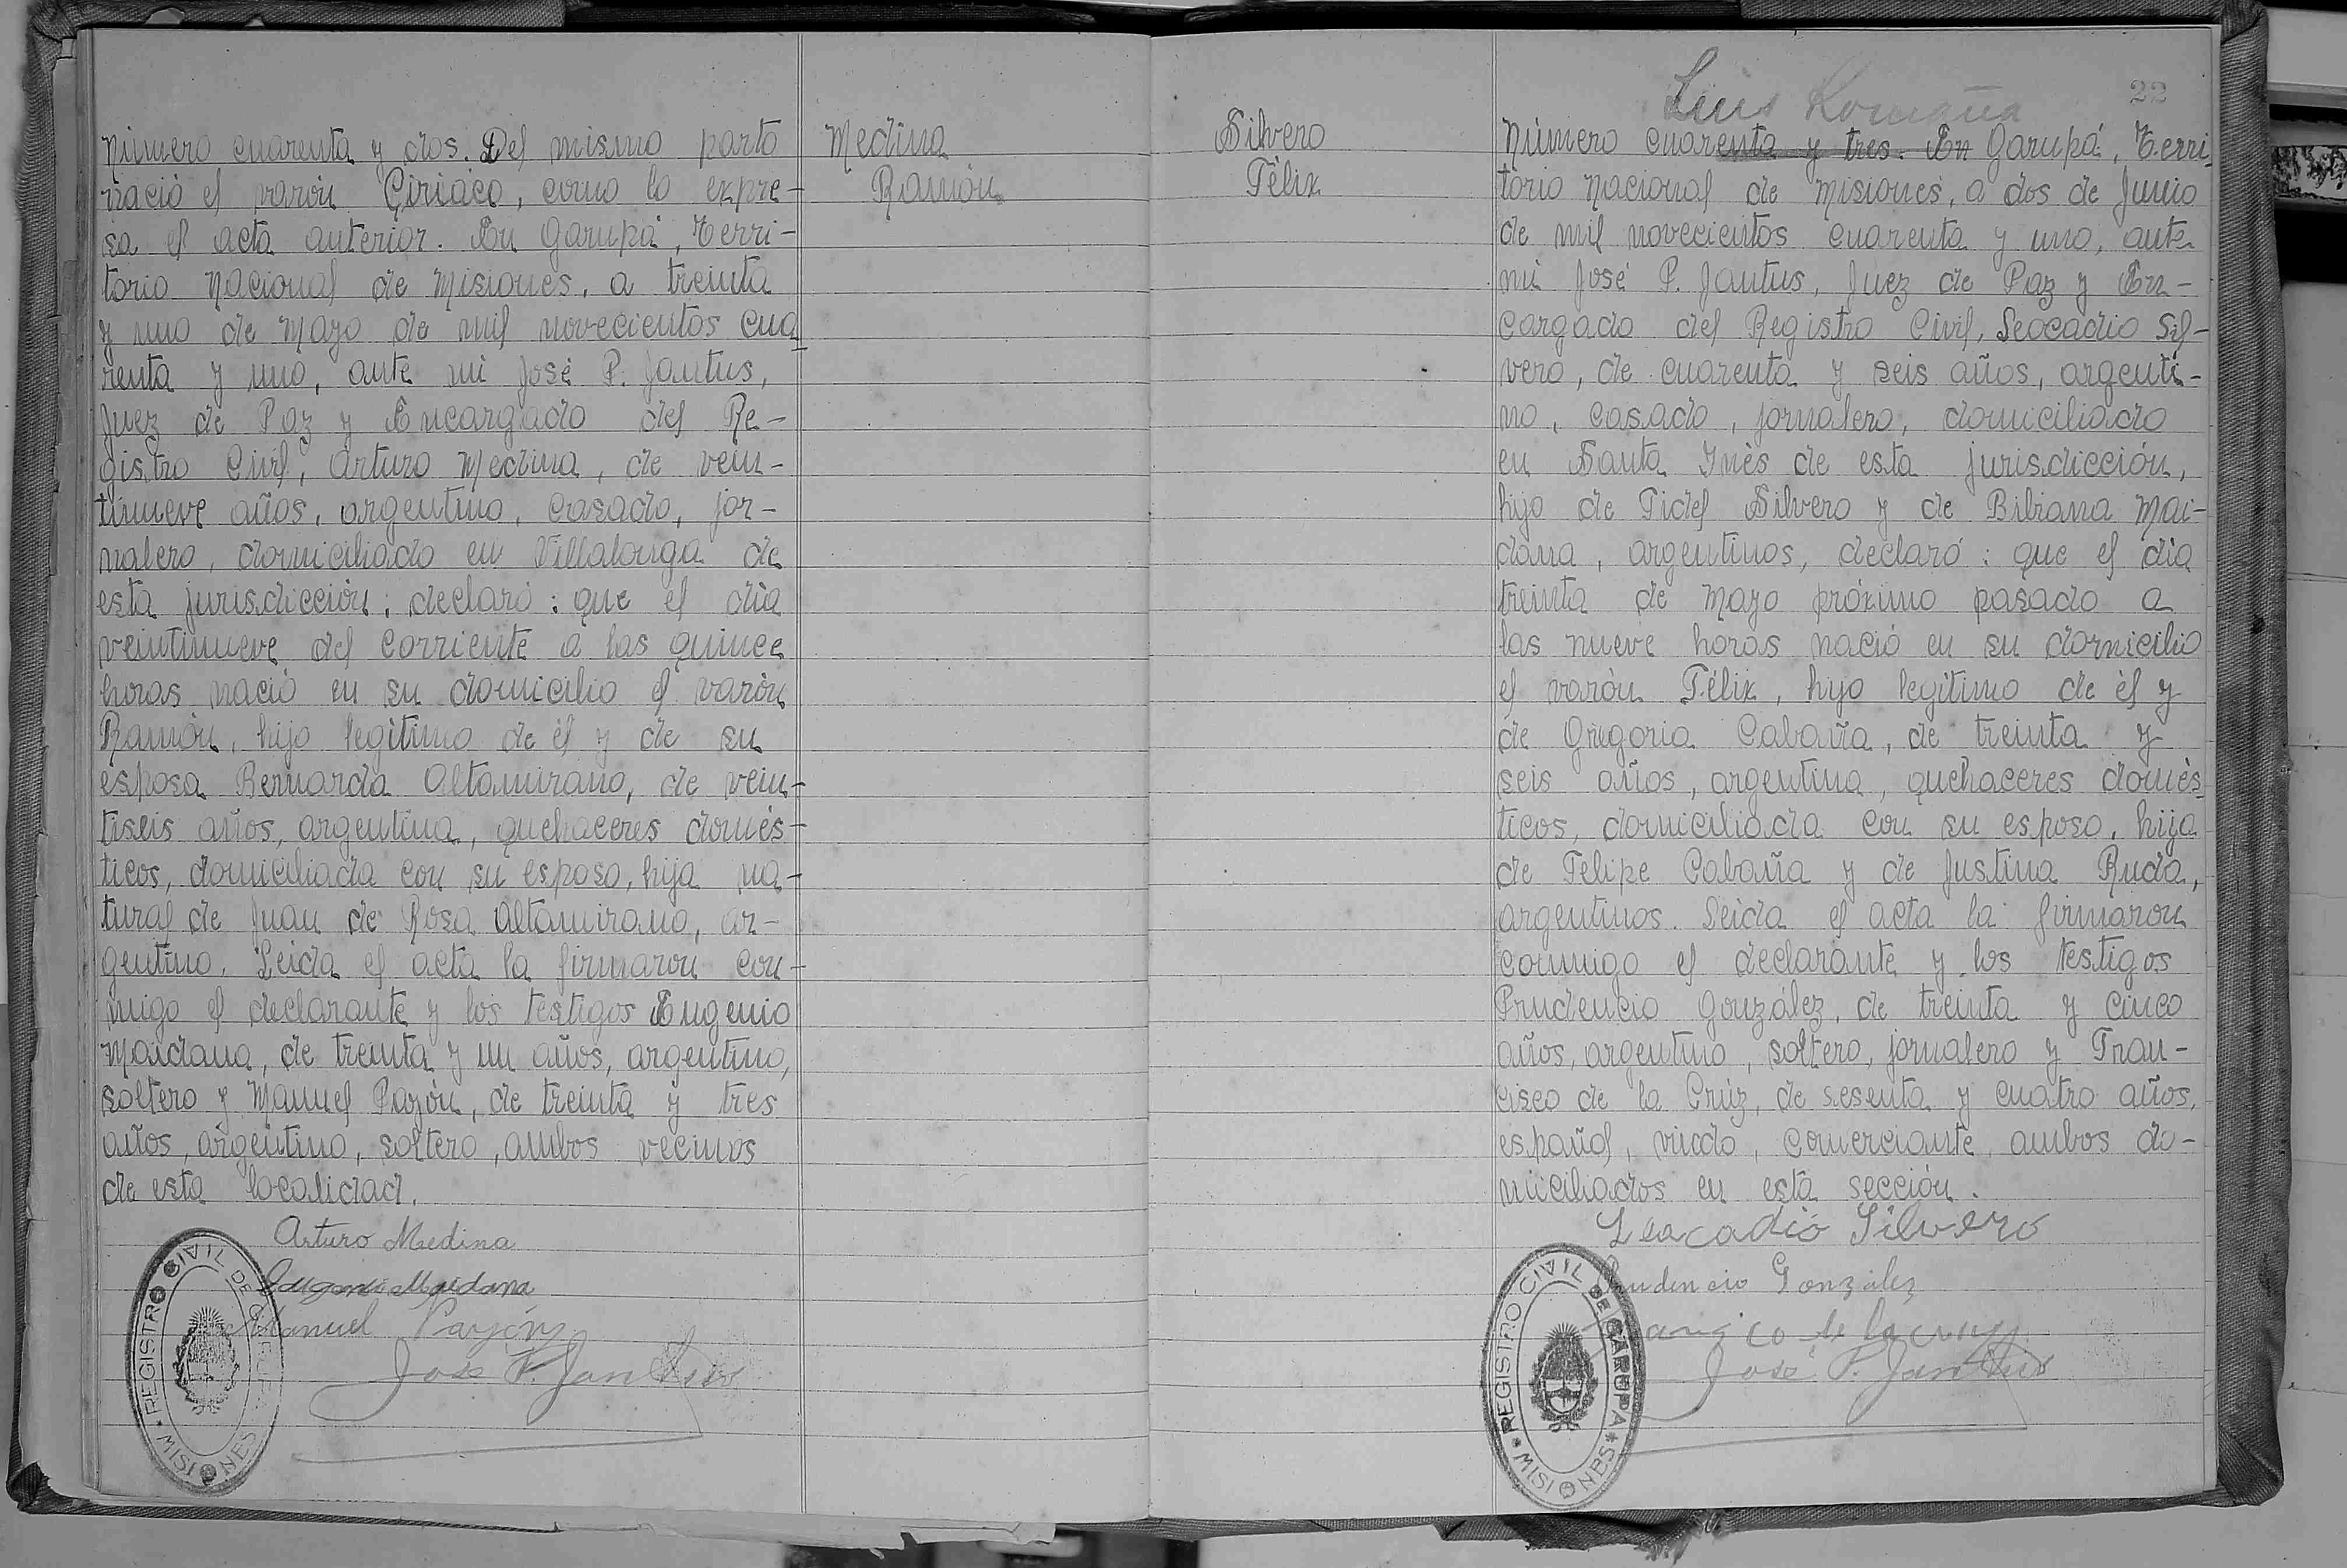 Número cuarenta y dos. Del mismo parto
nació el varón Ciriaco, como lo expre-
sa el acta anterior. En Garupá, Terri-
torio Nacional de Misiones, a treinta
y uno de Mayo de mil novecientos cua
renta y uno, ante mi José P. Jantus,
Juez de Paz y Encargado del Re-
gistro Civil, Arturo Medina, de vein-
tinueve años, argentino, casado, jor-
nalero, domiciliado en Villalonga de
esta jurisdicción; declaró: que el día
veintinueve del corriente a las quince
horas nació en su domicilio el varón
Ramón, hijo legítimo de él y de su
esposa Bernarda Altamirano, de vein-
tiseis años, argentina, quehaceres domés-
ticos, domiciliada con su esposo, hija na-
tural de Juan de Rosa Altamirano, ar-
gentino. Leida el acta la firmaron con-
migo el declarante y los testigos Eugenio
Maidana, de treinta y un años, argentino,
soltero y Manuel Payón, de treinta y tres
años, argentino, soltero, ambos vecinos
de esta localidad.
Arturo Medina
Eugenio Maidana
Manuel Payón
José P. Jantus
REGISTRO CIVIL DE
MISIONES
Medina
Ramón
Silvero
Félix
Luis Romaña
22
Número cuarenta y tres. En Garupá, Terri
torio Nacional de Misiones, a dos de Junio
de mil novecientos cuarenta y uno, ante
mi José P. Jantus, Juez de Paz y En-
cargado del Registro Civil, Leocadio Sil-
vero, de cuarenta y seis años, argenti-
no, casado, jornalero, domiciliado
en Santa Inés de esta jurisdicción,
hijo de Fidel Silvero y de Bibiana Mai-
dana, argentinos, declaró: que el día
treinta de Mayo próximo pasado a
las nueve horas nació en su domicilio
el varón Félix, hijo legítimo de él y
de Gregoria Cabaña, de treinta y
seis años, argentina, quehaceres domés
ticos, domiciliada con su esposo, hija
de Felipe Cabaña y de Justina Ruda,
argentinos. Leida el acta la firmaron
conmigo el declarante y los testigos
Prudencio González, de treinta y cinco
años, argentino, soltero, jornalero y Fran-
cisco de la Crúz, de sesenta y cuatro años,
español, viudo, comerciante, ambos do-
miciliados en esta sección.
Leocadio Silvero
Prudencio González
Francisco de la cruz
José P. Jantus
REGISTRO CIVIL DE GARUPA
MISIONES